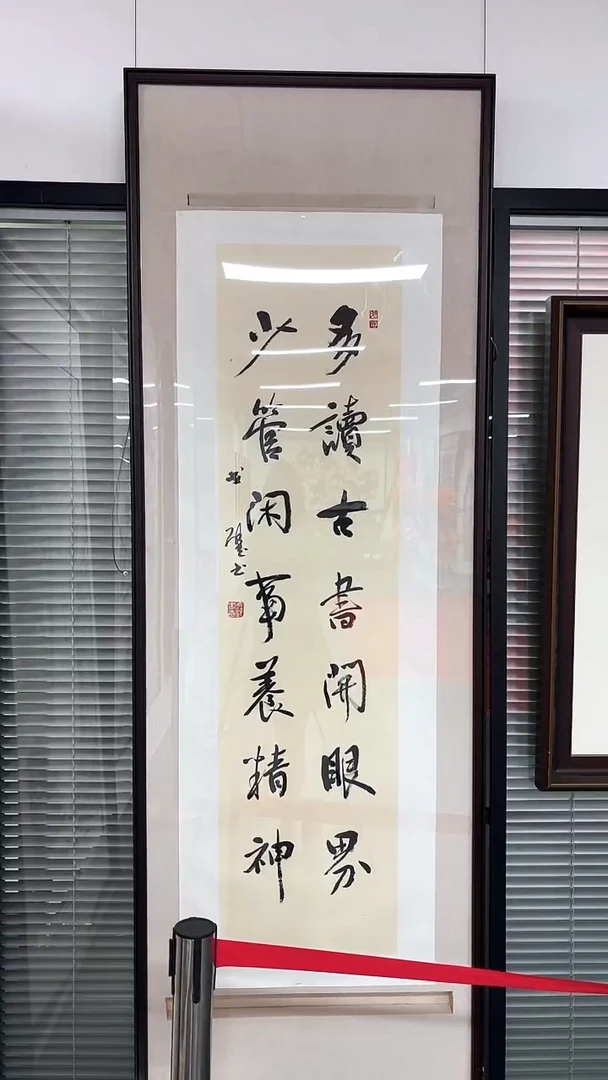 多讀古書開眼界
少管闲事養精神